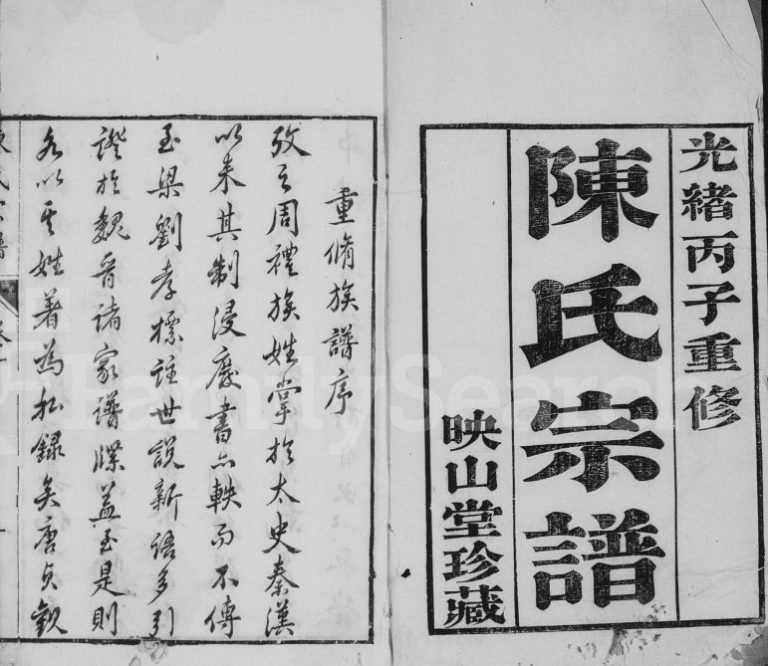 光緒丙子重修
陳氏宗譜
映山堂珍藏
重脩族譜序
攷之周禮族姓掌於太史秦漢
以来其制浸廢書亦軼而不傳
至梁劉孝標註世說新語多引
證於魏晉諸家譜牒盖至是則
各以其姓著為私録矣唐貞觀
FamilySearch